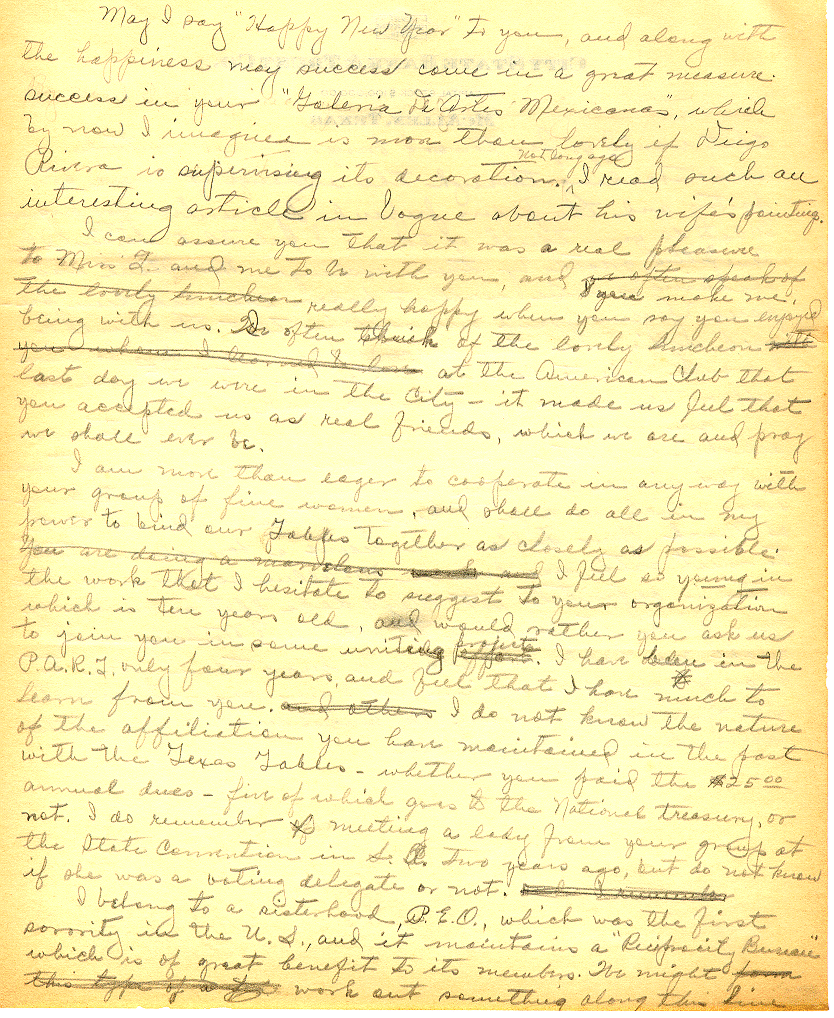 May I say "Happy New Year" to you, and along with
the happiness may success come in a great measure:
success in your "Galeria De Artes Mexicanas", which
by now I imagine is more than lovely if Diego
Rivera is supervising its decoration. Not long ago I read such an
interesting article in Vogue about his wife's painting.
I can assure you that it was a real pleasure
to Miss T. and me to be with you, and so often speak of
the lovely luncheon you make me really happy when you say you enjoyed
being with us. We often think of the lovely luncheon with
you whom I learned to love at the American Club that
last day we were in the City - it made us feel that
you accepted us as real friends, which we are and pray
we shall ever be.
I am more than eager to cooperate in any way with
your group of fine women, and shall do all in my
power to bind our Tables together as closely as possible.
You are doing a marvelous work and I feel so young in
the work that I hesitate to suggest to your organization
which is ten years old, and would rather you ask us
to join you in some uniting projects efforts. I have been in the
P.A.R.T. only four years, and feel that I have much to
learn from you. and others I do not know the nature
of the affiliation you have maintained in the past
with the Texas Tables - whether you paid the $25.00
annual dues - five of which goes to the National treasury, or
not. I do remember meeting a lady from your group at
the State Convention in S. A. two years ago, but do not know
if she was a voting delegate or not. I remember
I belong to a sisterhood, P.E.O., which was the first
sorority in the U.S., and it maintains a "Reciprocity Bureau"
which is of great benefit to its members. We might form
this type of a work out something along this line